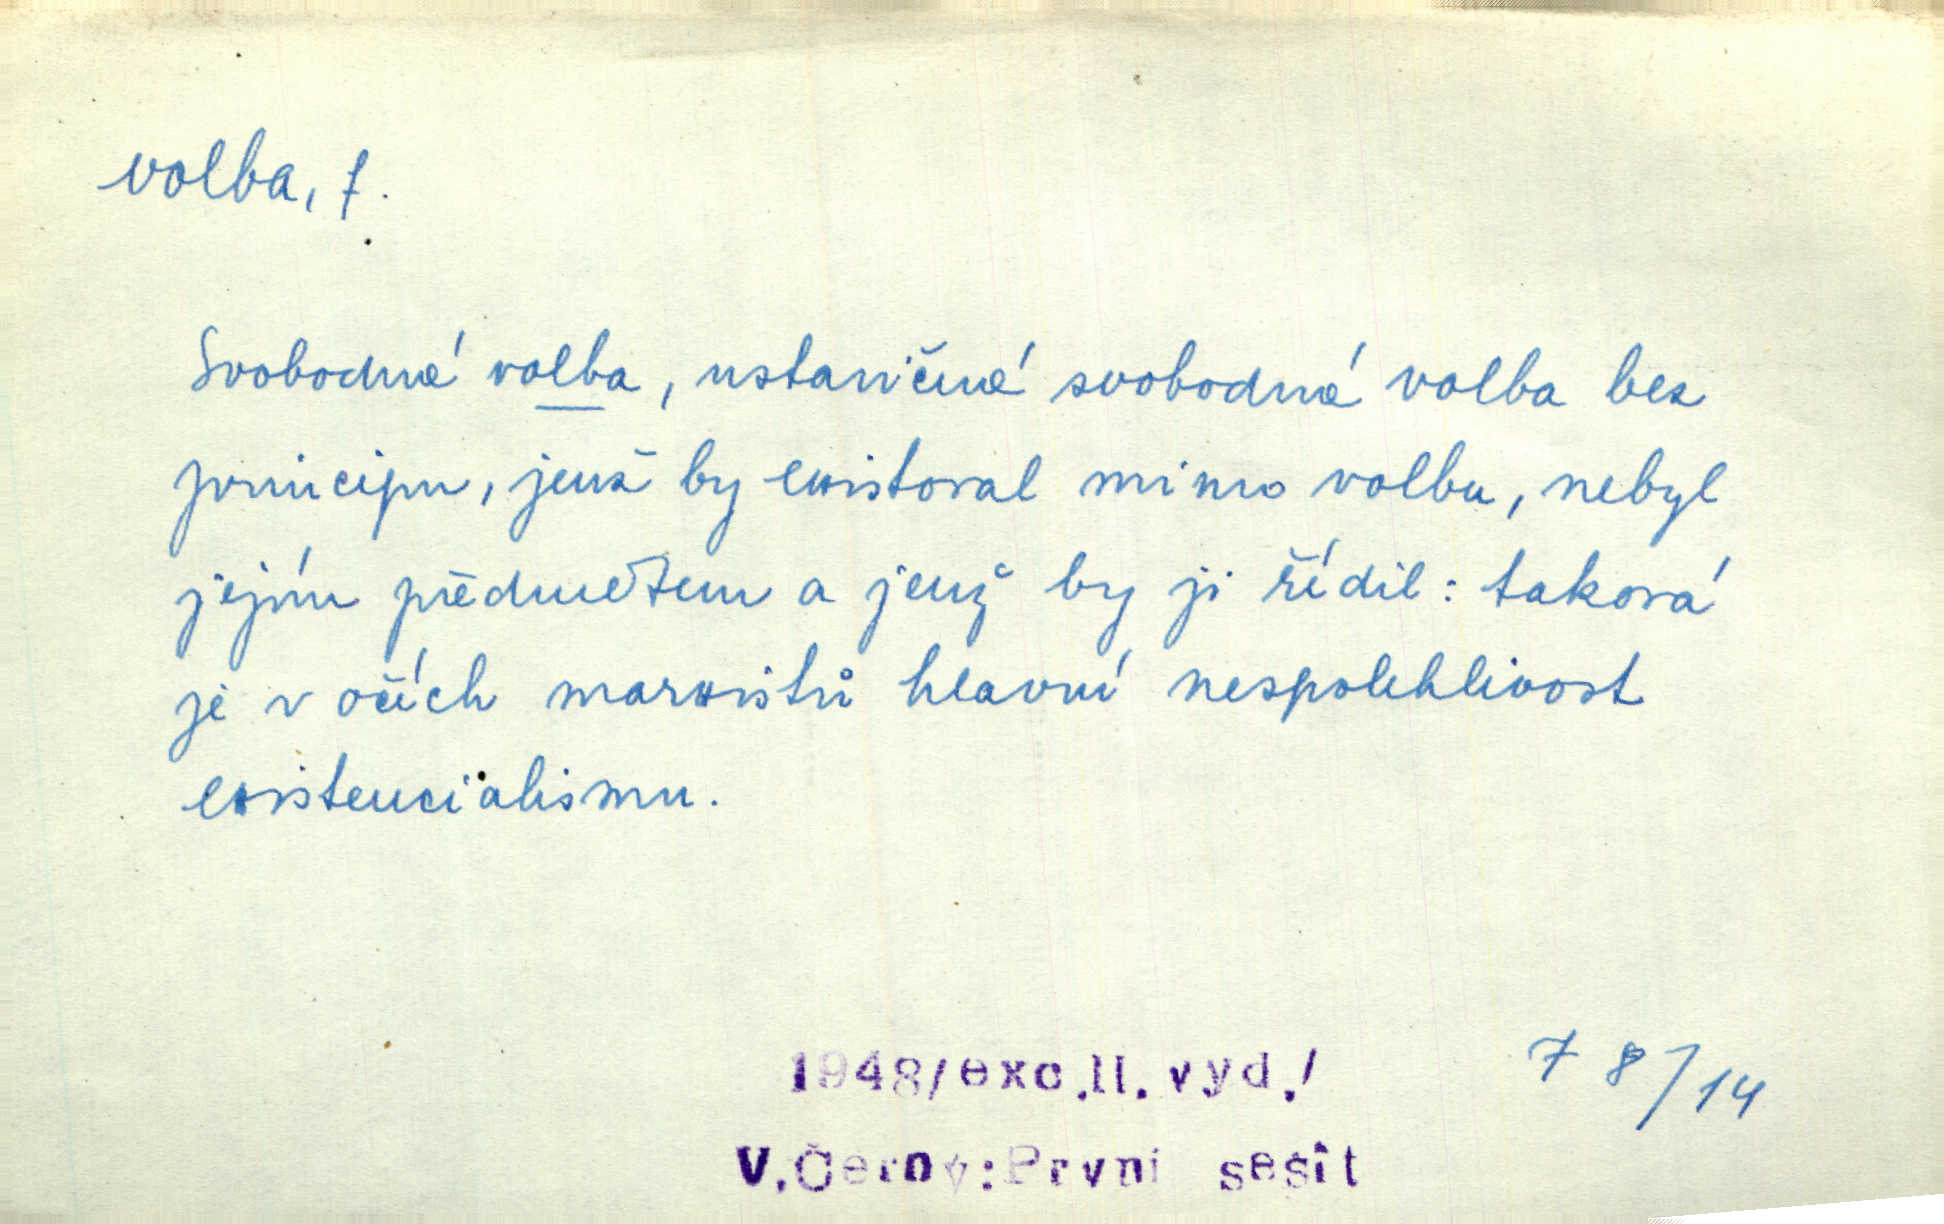 volba, f.
Svobodná volba, ustavičná svobodná volba bez
principu, jenž by existoval mimo volbu, nebyl
jejím předmětem a jenž by ji řídil: taková
je v očích marxistů hlavní nespolehlivost
existencialismu.
1948/exc.II.vyd./
7 8/14
V.Černý:První sešit